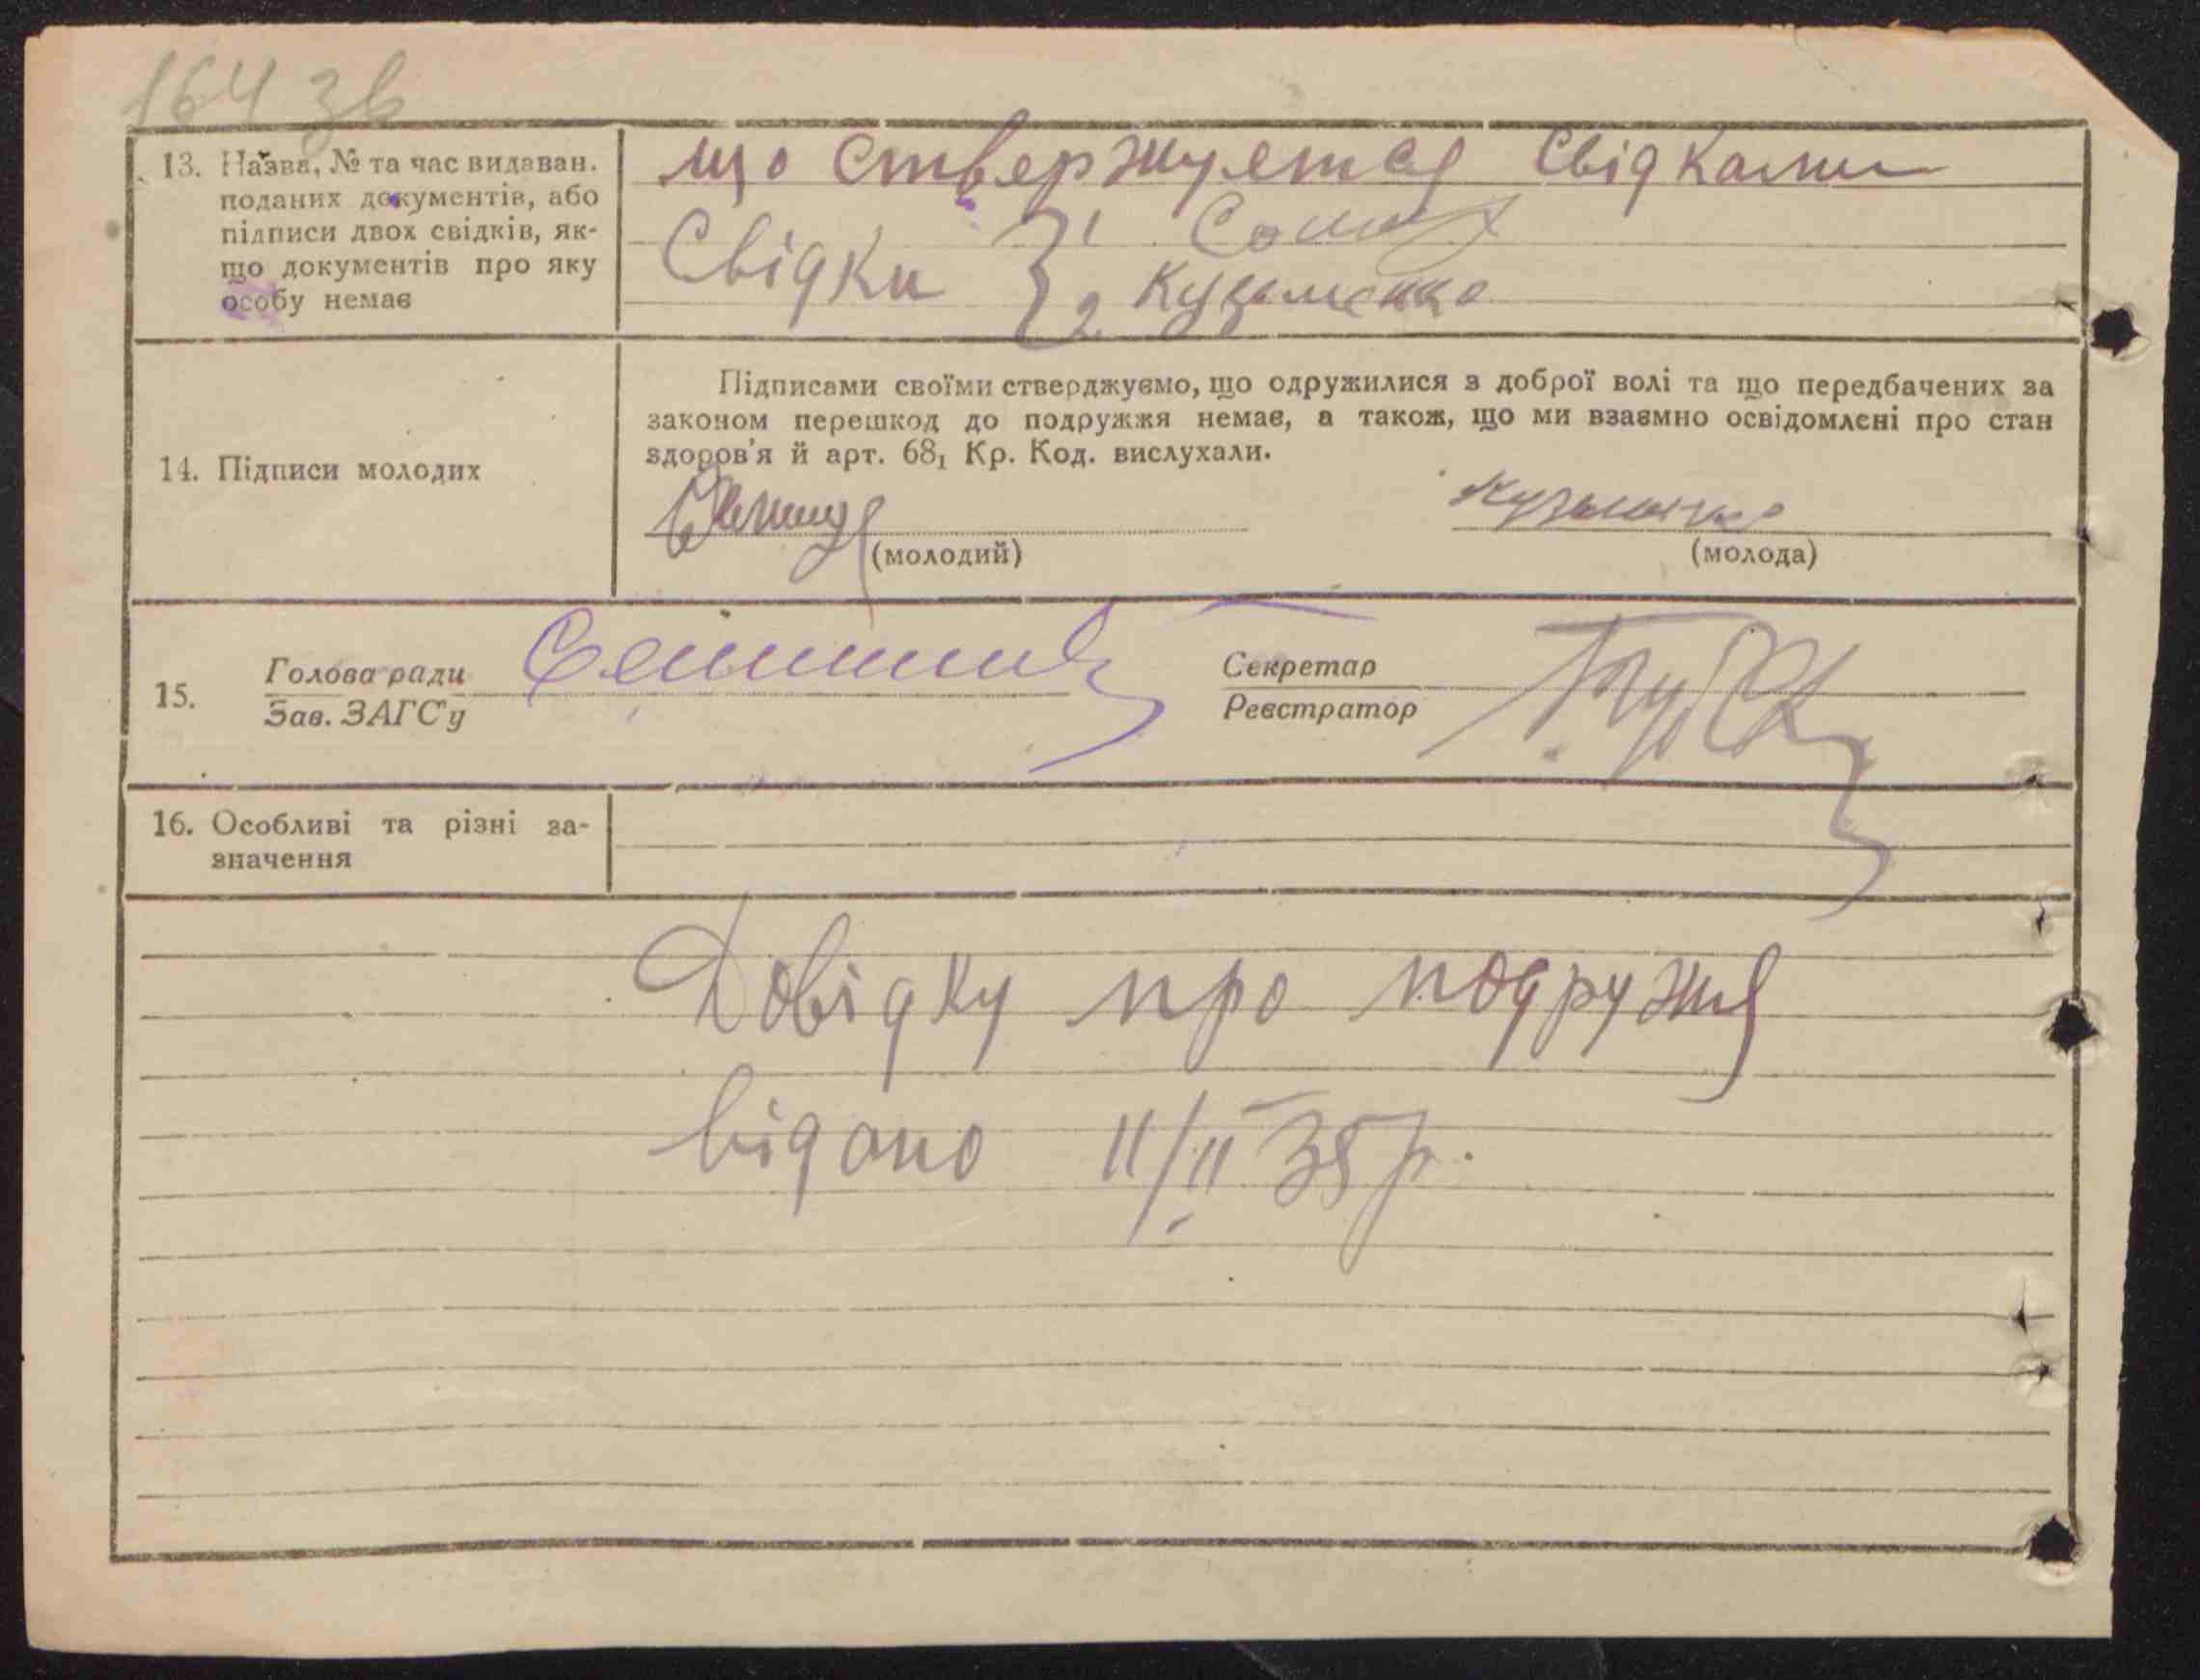 164 зв
13. Назва, № та час видаван.
поданих документів, або
підписи двох свідків, як-
що документів про яку
особу немає
що ствержуется свідками
Свідки 1
2 Кузьменко
14. Підписи молодих
Підписами своїми стверджуємо, що одружилися з доброї волі та що передбачених за
законом перешкод до подружжя немає, а також, що ми взаємно освідомлені про стан
здоров'я й арт. 68₁ Кр. Код. вислухали.
Кузьменко
(молодий) (молода)
15. Голова ради
Зав. ЗАГС'у
Секретар
Реєстратор
16. Особливі та різні за-
значення
Довідку про подружя
відано 11/II 35 р.